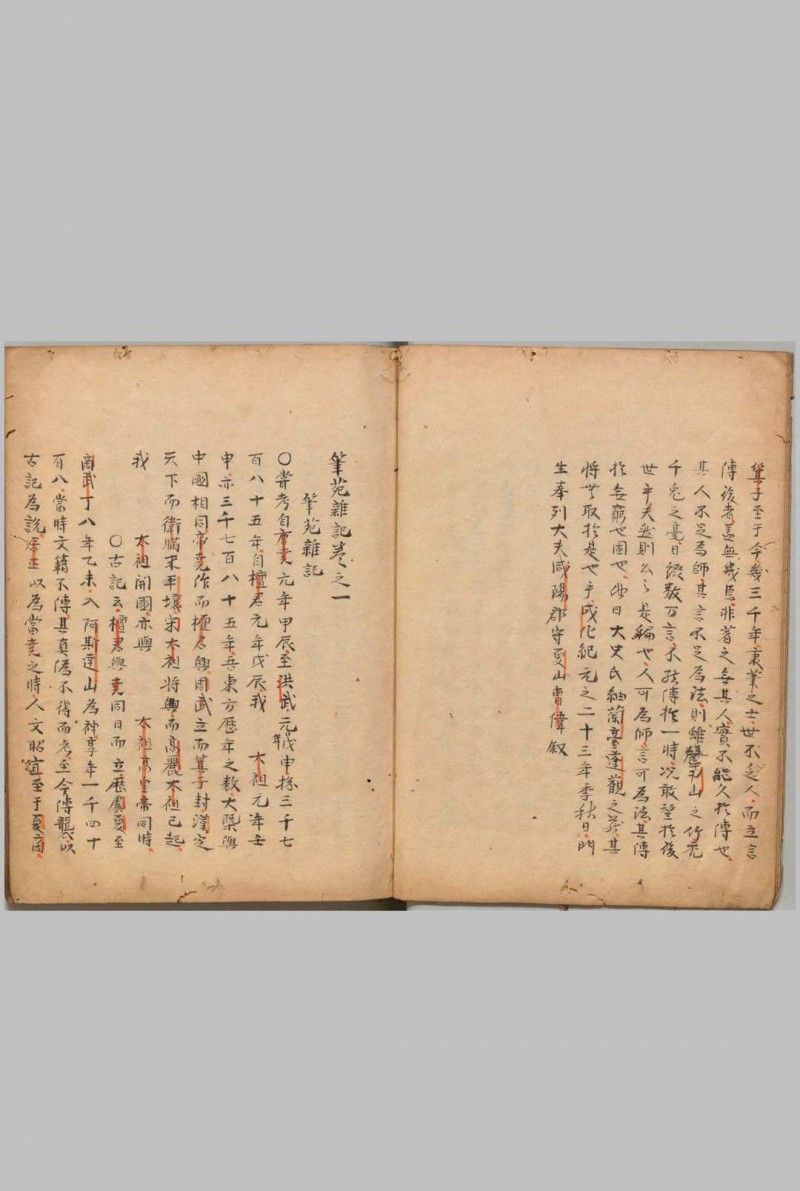 箕子至于今幾三千年秉筆之士世不乏人而立言
傳後者盖無幾焉非著之無其人實不能久於傳也
其人不足爲師其言不足爲法則雖罄南山之竹禿
千兎之毫日綴数万言不能傳於一時况敢望於後
世乎夫然則公之是編也人可爲師言可爲法其傳
於無窮也固也他日太史氏紬蘭臺蓬觀之藏其
將無取於是也乎成化紀元之二十三年季秋日門
生奉列大夫咸陽郡守夏山曺偉叙
筆苑雜記卷之一
筆苑雜記
○嘗考自唐堯元年甲辰至洪武元年戊申揔三千七
百八十五年自檀君元年戊辰我 太祖元年壬
申亦三千七百八十五年吾東方歷年之数大槩與
中國相同帝堯作而檀君興周武立而箕子封漢定
天下而衛滿来平壤宋太祖將興而高麗太祖已起
我 太祖開國亦與 太祖高皇帝同時
○古記云檀君與堯同日而立歷虞夏至
商武丁八年乙未入阿斯達山爲神享年一千四十
有八當時文籍不傳其真僞不得而考至今傳襲以
古記爲說居正以爲當堯之時人文昭宣至于夏商